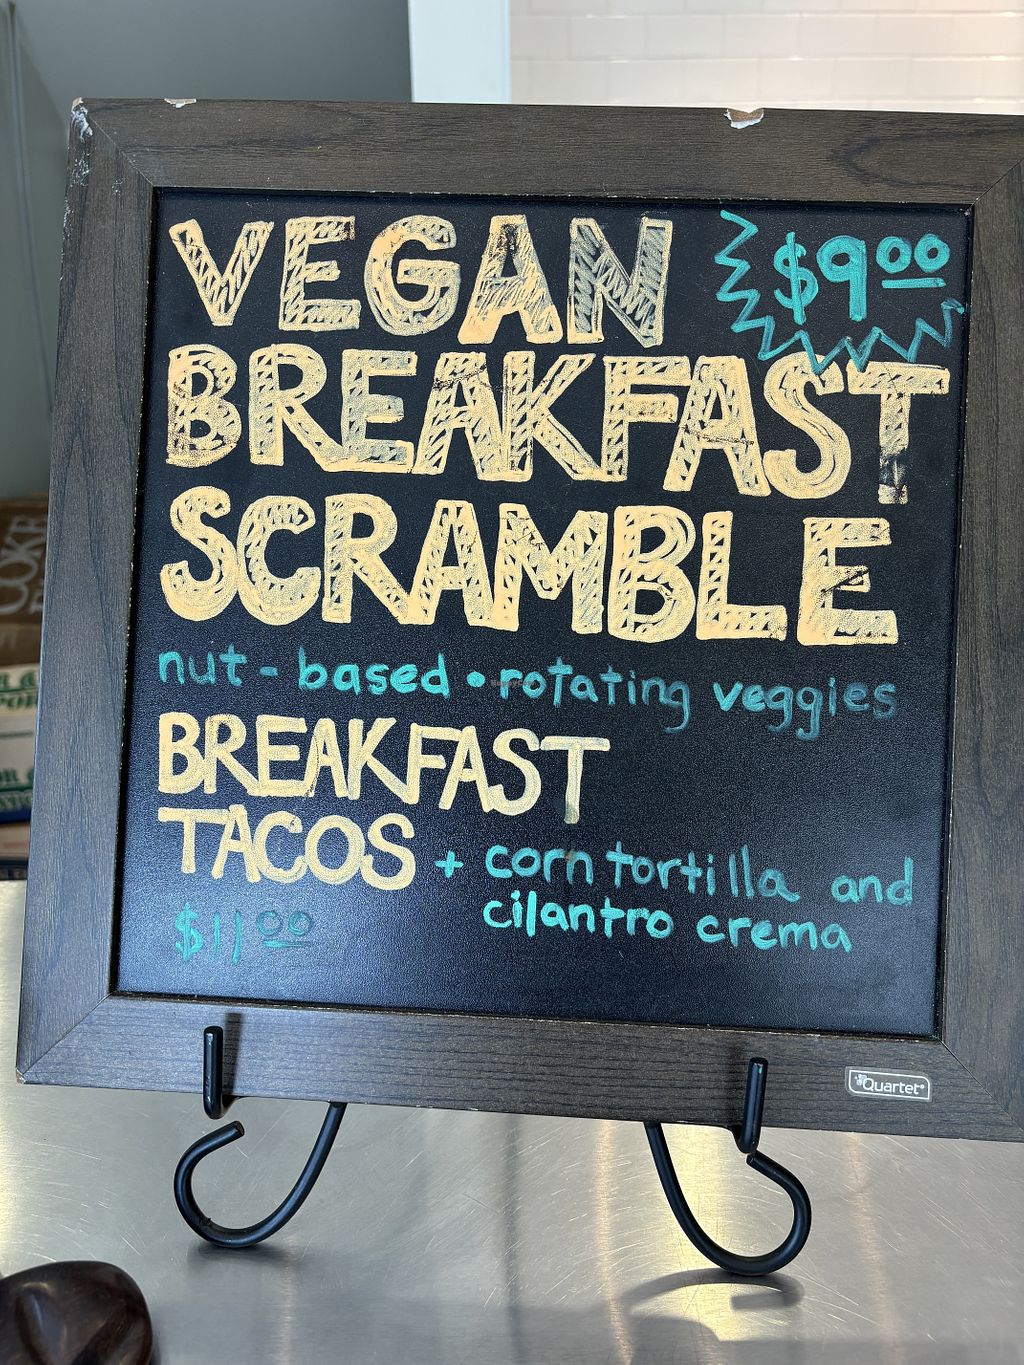 VEGAN $9.00
BREAKFAST
SCRAMBLE
nut-based • rotating veggies
BREAKFAST
TACOS + corn tortilla and
cilantro crema
$11.00
Quartet